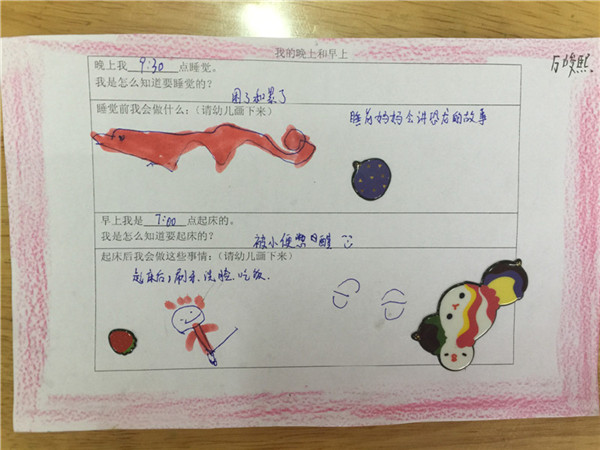 我的晚上和早上
晚上我 9:30 点睡觉。
我是怎么知道要睡觉的？
困了和累了
睡觉前我会做什么：（请幼儿画下来）
睡前妈妈会讲恐龙的故事
早上我是 7:00 点起床的。
我是怎么知道要起床的？
被小便憋醒
起床后我会做这些事情：（请幼儿画下来）
起床后，刷牙、洗脸、吃饭.